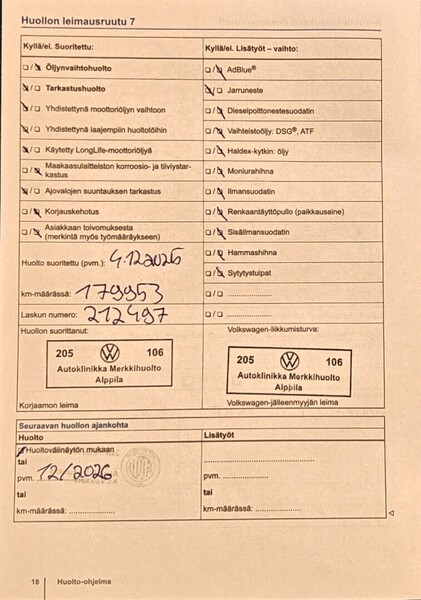 Huollon leimausruutu 7
Kyllä/ei. Suoritettu:
Kyllä/ei. Lisätyöt – vaihto:
Öljynvaihtohuolto
AdBlue®
Tarkastushuolto
Jarruneste
Yhdistettynä moottoriöljyn vaihtoon
Dieselpolttonestesuodatin
Yhdistettynä laajempiin huoltotöihin
Vaihteistoöljy: DSG®, ATF
Käytetty LongLife-moottoriöljyä
Haldex-kytkin: öljy
Maakaasulaitteiston korroosio- ja tiiviystar-
kastus
Moniurahihna
Ajovalojen suuntauksen tarkastus
Ilmansuodatin
Korjauskehotus
Renkaantäyttöpullo (paikkausaine)
Asiakkaan toivomuksesta
(merkintä myös työmääräykseen)
Sisäilmansuodatin
Hammashihna
Huolto suoritettu (pvm.): 4.12.2025
Sytytystulpat
km-määrässä: 179953
Laskun numero: 212497
Huollon suorittanut:
Volkswagen-liikkumisturva:
205 106
Autoklinikka Merkkihuolto
Alppila
205 106
Autoklinikka Merkkihuolto
Alppila
Korjaamon leima
Volkswagen-jälleenmyyjän leima
Seuraavan huollon ajankohta
Huolto
Lisätyöt
Huoltovälinäytön mukaan
tai
pvm. 12/2026
pvm.
tai
tai
km-määrässä:
km-määrässä:
18 Huolto-ohjelma